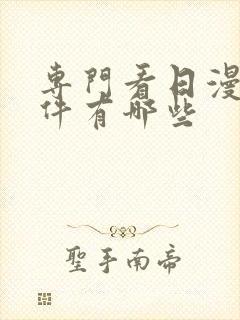 專門看日漫
件有哪些
聖手南帝